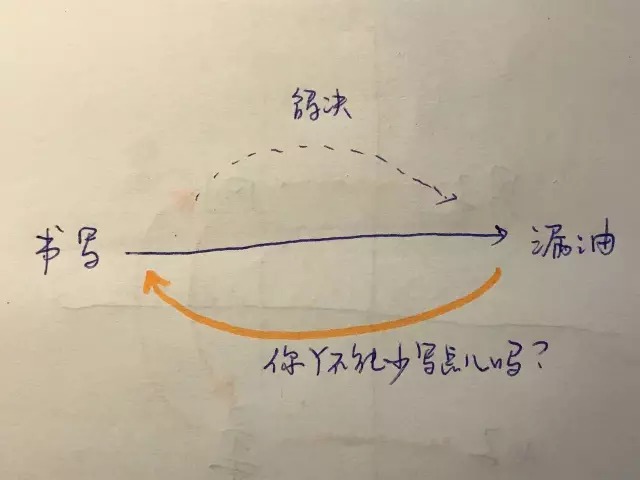 解决
书写
漏油
你丫不能少写点儿吗?